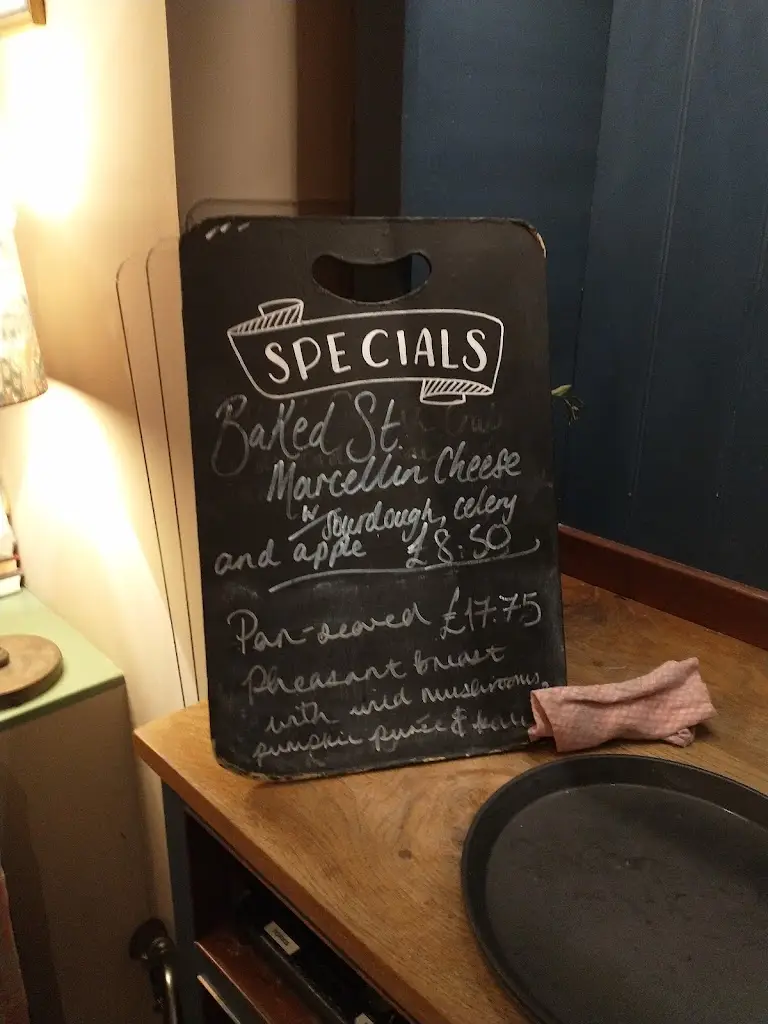 SPECIALS
Baked St.
Marcellin Cheese
w sourdough, celery
and apple £8.50
Pan-seared £17.75
Pheasant breast
with wild mushrooms,
pumpkin purée &